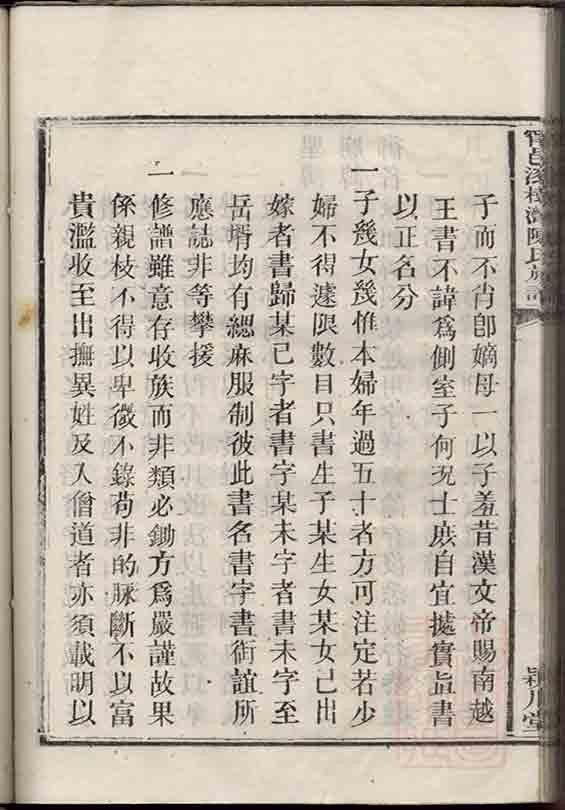 子而不肖卽嫡母一以子羞昔漢文帝賜南越
王書不諱爲側室子何况士庶自宜據實直書
以正名分
一子幾女幾惟本婦年過五十者方可注定若少
婦不得遽限數目只書生子某生女某女已出
嫁者書歸某已字者書字某未字者書未字至
岳壻均有緦麻服制彼此書名書字書銜誼所
應誌非等攀援
一修譜雖意存收族而非類必鋤方爲嚴謹故果
係親枝不得以卑微不錄苟非的脉斷不以富
貴濫收至出撫異姓及入僧道者亦須載明以
陳氏族譜
潁川堂